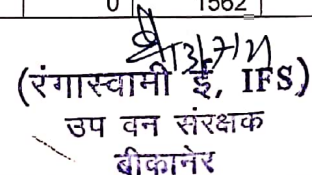 0 1562
(रंगास्वामी ई, IFS)
उप वन संरक्षक
बीकानेर